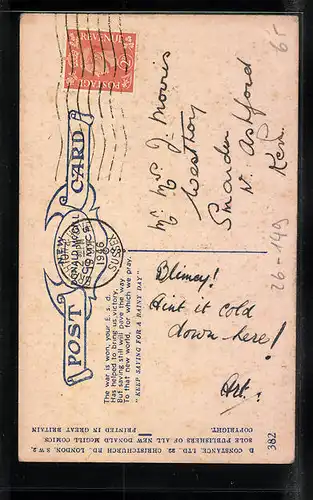 REVENUE
POSTAGE
POST CARD
"NEW"
DONALD McGILL
COMICS
1946
SUSSEX
The war is won, your £. s. d.
Has helped to bring us victory,
But saving still will pave the way
To that new world, for which we pray.
"KEEP SAVING FOR A RAINY DAY"
Mr. Mrs J. Morris
Westhoy
Smarden
Nr Ashford
Ken.
Blimey!
Aint it cold
down here!
Art.
65
26-149
D CONSTANCE, LTD., 22, CHRISTCHURCH RD., LONDON, S.W.2.
SOLE PUBLISHERS OF ALL NEW DONALD McGILL COMICS.
COPYRIGHT. PRINTED IN GREAT BRITAIN
382